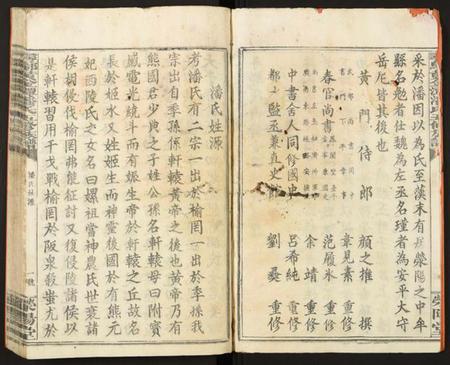 采於潘因以為氏至漢末有
滎陽之中牟
縣名勉者仕魏為左丞名瑾者為安平大守
岳尼皆其後也
黃門侍郎 顏之推 撰
章見素 重修
春官尚書 范履氷 重修
余靖 重修
中書舍人同修國史 呂希純 重修
鄭 監丞兼直史 劉 重修
潘氏姓源
考潘氏有二宗一出於榆罔一出於季孫我
宗出自季孫係軒轅黃帝之後也黃帝乃有
熊國君少典之子姓公孫名軒轅母曰附寶
感電光統斗而有娠生帝於軒轅之丘故名
長於姬水又姓姬生而神靈後國於有熊元
妃西陵氏之女名曰嫘祖當神農氏世衰諸
侯相侵伐榆罔弗能征討又復侵陵諸侯以
是軒轅習用干戈戰榆罔於阪泉殺蚩尤於
潘氏姓源
一
滎陽堂